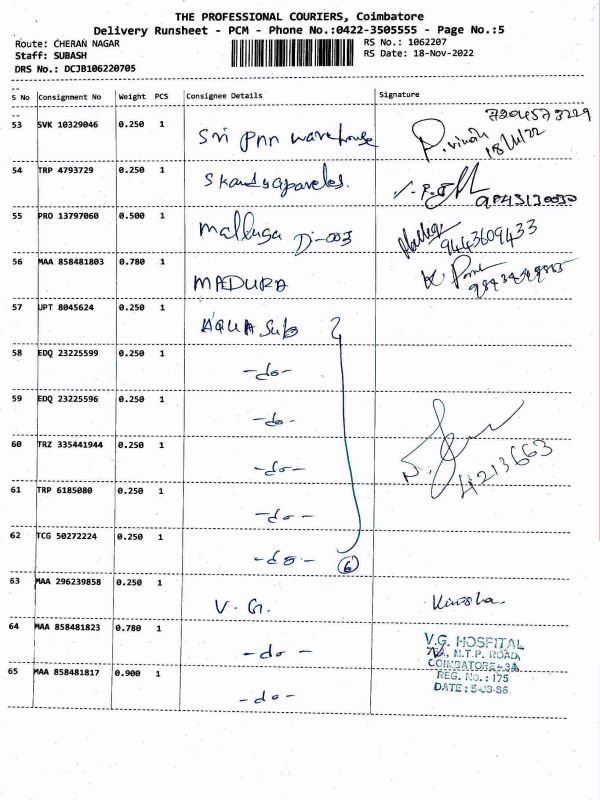 THE PROFESSIONAL COURIERS, Coimbatore
Delivery Runsheet - PCM - Phone No.:0422-3505555 - Page No.:5
Route: CHERAN NAGAR RS No.: 1062207
Staff: SUBASH RS Date: 18-Nov-2022
DRS No.: DCJB106220705
S No Consignment No Weight PCS Consignee Details Signature
53 SVK 10329046 0.250 1 Sri Pnn warehouse
18/11/22
54 TRP 4793729 0.250 1
55 PRO 13797060 0.500 1 Malluga D-003 9443609433
56 MAA 858481803 0.780 1 MADURA
57 UPT 8045624 0.250 1 AQUA Sub
58 EDQ 23225599 0.250 1 -do-
59 EDQ 23225596 0.250 1 -do-
60 TRZ 335441944 0.250 1 -do- 4213663
61 TRP 6185080 0.250 1 -do-
62 TCG 50272224 0.250 1 -do- 6
63 MAA 296239858 0.250 1 V.G.
64 MAA 858481823 0.780 1 -do-
V.G. HOSPITAL
M.T.P. ROAD,
COIMBATORE-
REG. No.: 175
65 MAA 858481817 0.900 1 -do-
DATE: